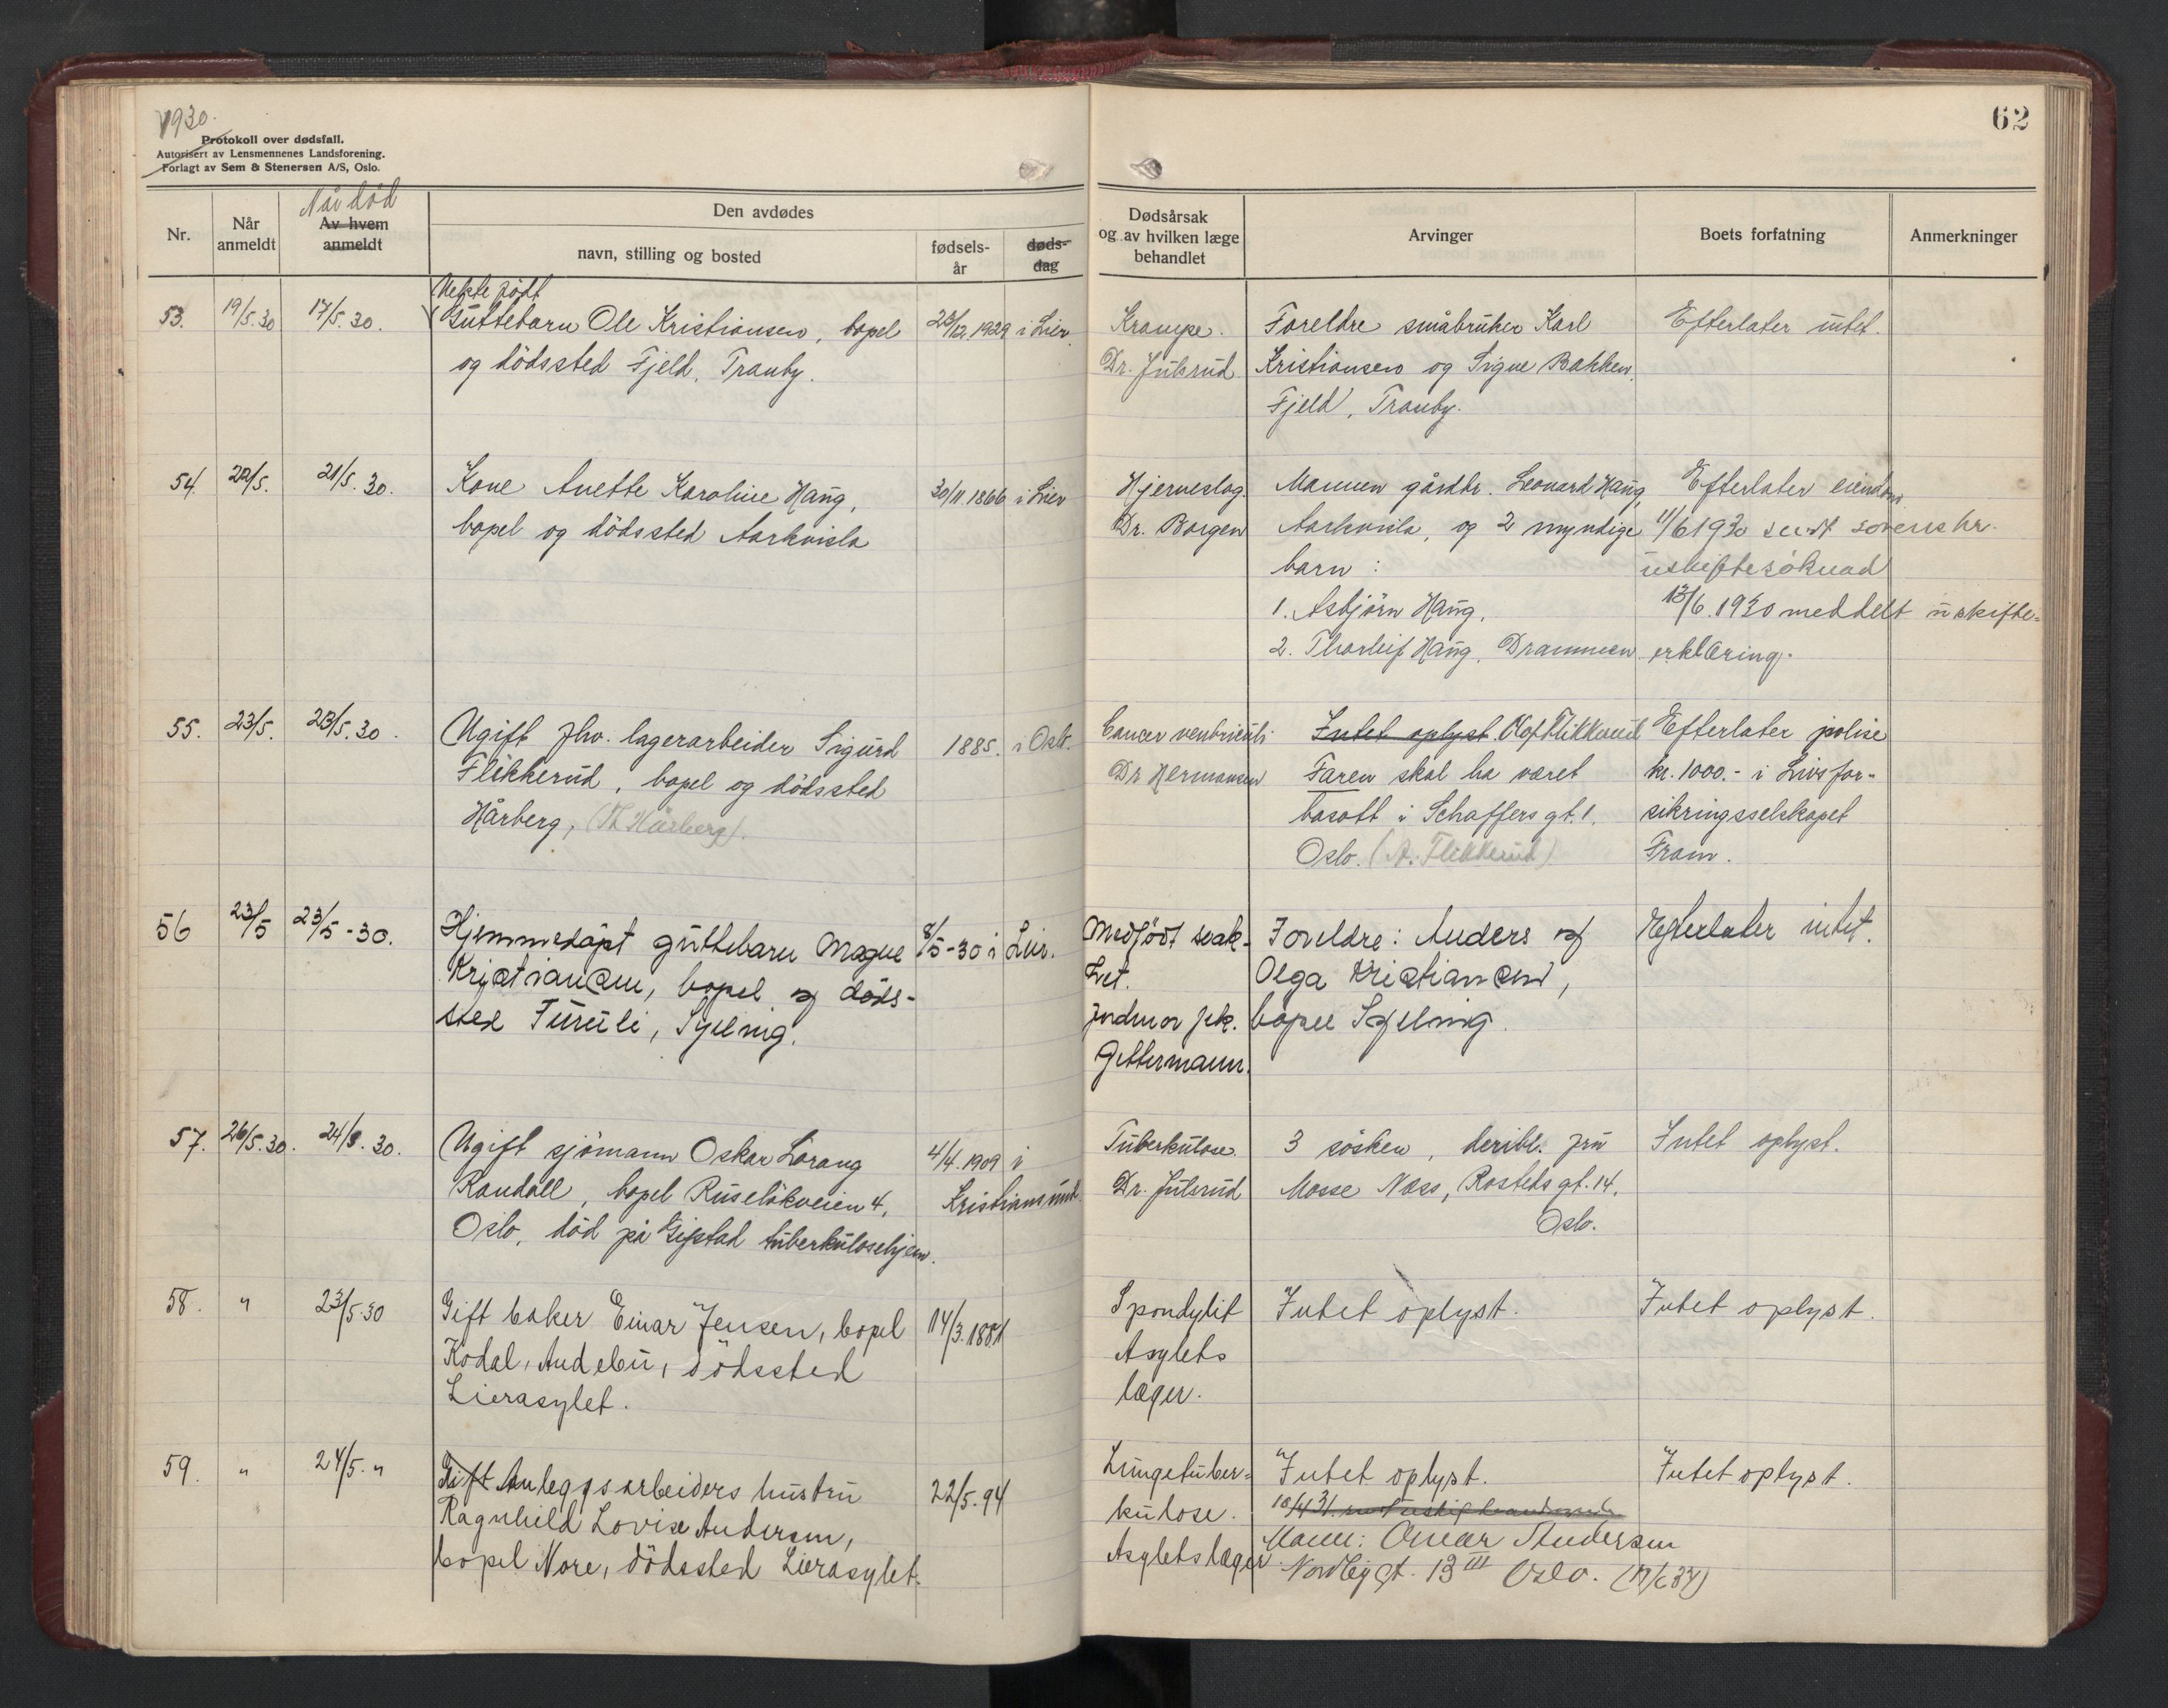 1930.
Protokoll over dødsfall.
Autorisert av Lensmennenes Landsforening.
Forlagt av Sem & Stenersen A/S, Oslo.
62
Nr.
Når anmeldt
Når död
Av hvem anmeldt
Den avdødes
navn, stilling og bosted
fødsels-
år
døds-
dag
Dødsårsak
og av hvilken læge
behandlet
Arvinger
Boets forfatning
Anmerkninger
53. 19/5.30 17/5.30.
Ekte födt
Guttebarn Ole Kristiansen, bopel
og dödssted Fjeld, Tranby.
25/12.1929 i Lier.
Krampe.
Dr. Julsrud
Foreldre småbruker Karl
Kristiansen og Signe Bakken,
Fjeld, Tranby.
Efterlater intet.
54. 22/5. 21/5.30.
Kone Anette Karoline Haug,
bopel og dödssted Aarkvisla
30/11.1866 i Lier
Hjerneslag.
Dr. Borgen
Mannen gårdbr. Leonard Haug,
Aarkvisla, og 2 myndige
barn:
1. Asbjörn Haug,
2. Thorleif Haug, Drammen
Efterlater eiendom
11/6 1930 sendt sorenskr.
uskiftesöknad
13/6.1930 meddelt uskifte-
erklæring.
55. 23/5. 23/5.30.
Ugift fhv. lagerarbeider Sigurd
Flikkerud, bopel og dödssted
Hårberg, (Th Hårberg).
1885. i Oslo.
Cancer ventriculi
Dr Hermansen
Intet oplyst. Olof Flikkerud
Faren skal ha været
bosatt i Schaffers gt. 1.
Oslo. (A. Flikkerud)
Efterlater polise
kr. 1000.- i Livsfor-
sikringsselskapet
Fram.
56 23/5 23/5-30.
Hjemmedöpt guttebarn Magne
Kristiansen, bopel og döds-
sted Furuli, Sylling.
8/5-30 i Lier.
Medfödt svak-
het.
Jordmor frk.
Gettermann.
Foreldre: Anders og
Olga Kristiansen,
bopel Sylling.
Efterlater intet.
57. 26/5.30. 24/5.30.
Ugift sjömann Oskar Lorang
Randall, bopel Ruselökveien 4,
Oslo, död på Gifstad tuberkulosehjem.
4/4.1909 i
Kristiansund.
Tuberkulose.
Dr. Julsrud
3 sösken, deribl. fru
Mosse Næss, Rosteds gt. 14,
Oslo.
Intet oplyst.
58. " 23/5.30
Gift baker Einar Jensen, bopel
Kodal, Andebu, dödssted
Lierasylet.
14/3.1881
Spondylit
Asylets
læger.
Intet oplyst.
Intet oplyst.
59. " 24/5. "
Gift Anleggsarbeiders hustru
Ragnhild Lovise Andersen,
bopel Nore, dödssted Lierasylet.
22/5.94
Lungetuber-
kulose.
Asylets læger.
Intet oplyst.
10/4 31.
Mann: Omar Andersen
Nordbygt. 13 III Oslo.
Intet oplyst.